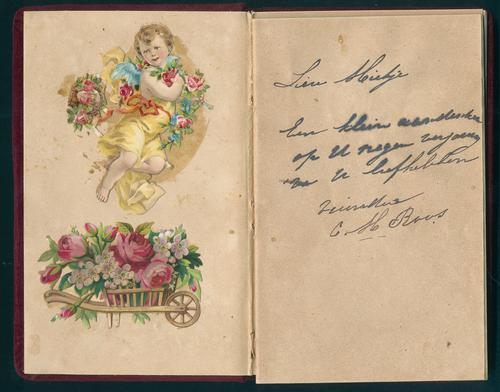 Lieve Mietje
Een klein aandenken
op U negen verjaring
van U liefhebbende
vriendin
C. M. Roos